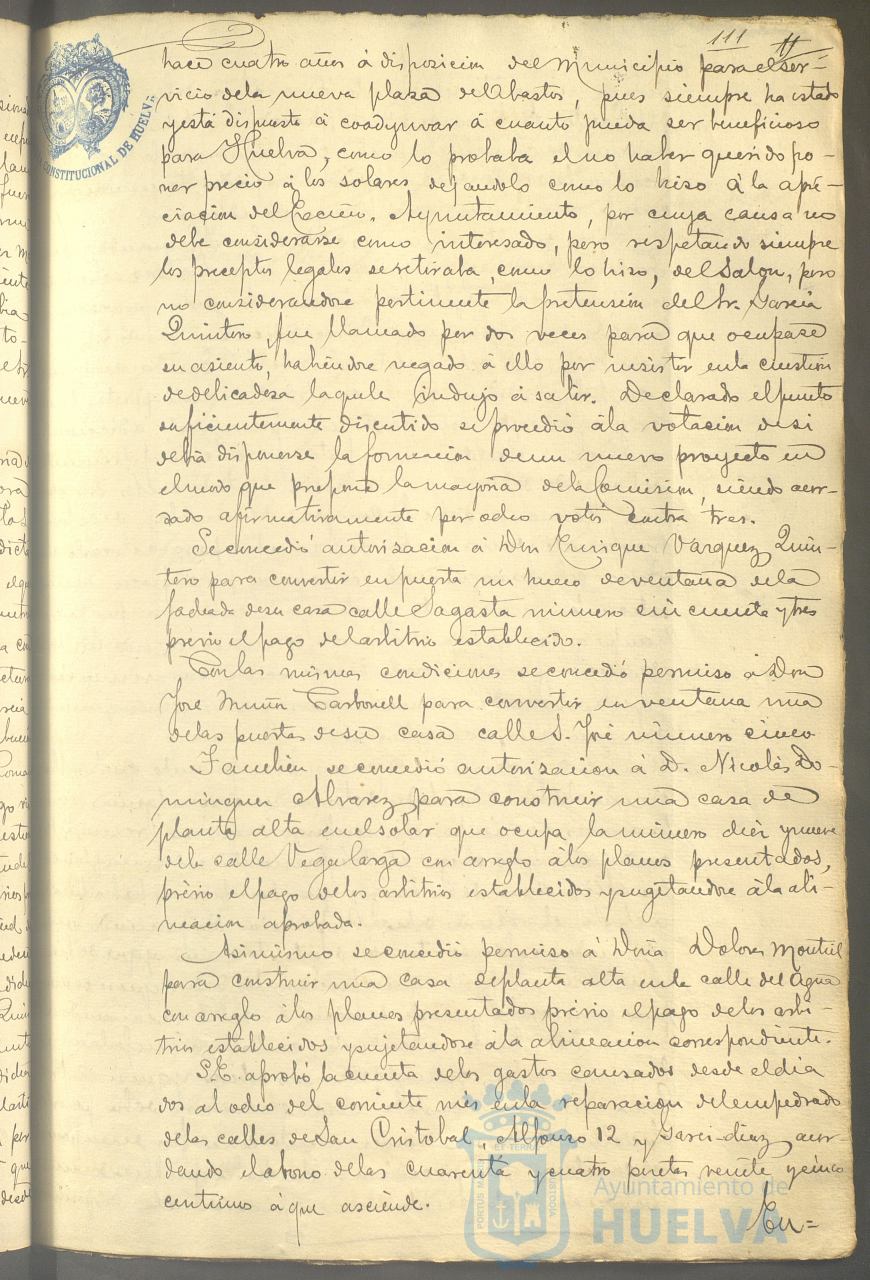 111
hace cuatro años á disposicion del Municipio para el ser-
vicio de la nueva plaza de Abastos, pues siempre ha estado
y está dispuesto á coadyuvar á cuanto pueda ser beneficioso
para Huelva, como lo probaba el no haber querido po-
ner precio á los solares dejandolo como lo hizo á la apre-
ciacion del Excmo. Ayuntamiento, por cuya causa no
debe considerarse como interesado, pero respetando siempre
los preceptos legales se retiraba, como lo hizo, del Salon, pero
no considerandose pertinente la pretension del Sr. Garcia
Quintero, fue llamado por dos veces para que ocupase
su asiento, habiendose negado á ello por insistir en la cuestion
de delicadeza la que le indujo á salir. Declarado el punto
suficientemente discutido se procedió á la votacion de si
debia disponerse la formacion de un nuevo proyecto en
el modo que propone la mayoria de la Comision, siendo acor-
dado afirmativamente por ocho votos contra tres.
Se concedió autorizacion á Don Enrique Vazquez Quin-
tero para convertir en puerta un hueco de ventana de la
fachada de su casa calle Sagasta número cincuenta y tres
previo el pago del arbitrio establecido.
Con las mismas condiciones se concedió permiso á Don
José Muñoz Carbonell para convertir en ventana una
de las puertas de su casa calle S. José número cinco
Tambien se concedió autorizacion á D. Nicolás Do-
minguez Alvarez para construir una casa de
planta alta en el solar que ocupa la número diez y nueve
de la calle Vega larga con arreglo á los planos presentados,
prévio el pago de los arbitrios establecidos y sugetandose á la ali-
neacion aprobada.
Asimismo se concedió permiso á Doña Dolores Montiel
para construir una casa de planta alta en la calle del Agua
con arreglo á los planos presentados prévio el pago de los arbi-
trios establecidos y sujetandose á la alineacion correspondiente.
S.E. aprobó la cuenta de los gastos causados desde el dia
dos al ocho del corriente mes en la reparacion del empedrado
de las calles de San Cristobal, Alfonso 12 y Garci-diaz acor-
dando el abono de las cuarenta y cuatro pesetas veinte y cinco
centimos á que asciende.
En=
CONSTITUCIONAL DE HUELVA
Ayuntamiento de
HUELVA